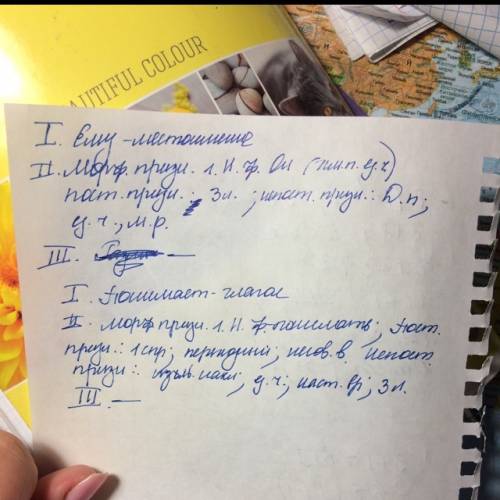 BEAUTIFUL COLOUR
I. Ему - местоимение
II. Морф. призн. 1. Н. ф. Он (им.п. ед.ч)
пост. призн. : 3 л. ; непост. призн.: Д.п;
ед.ч., м.р.
III. —
I. Понимает - глагол
II. Морф призн. 1. Н. ф - понимать; пост.
призн.: 1 спр; переходный; несов.в. Непост.
призн.: изъяв. накл; ед.ч.; наст. вр; 3 л.
III. —